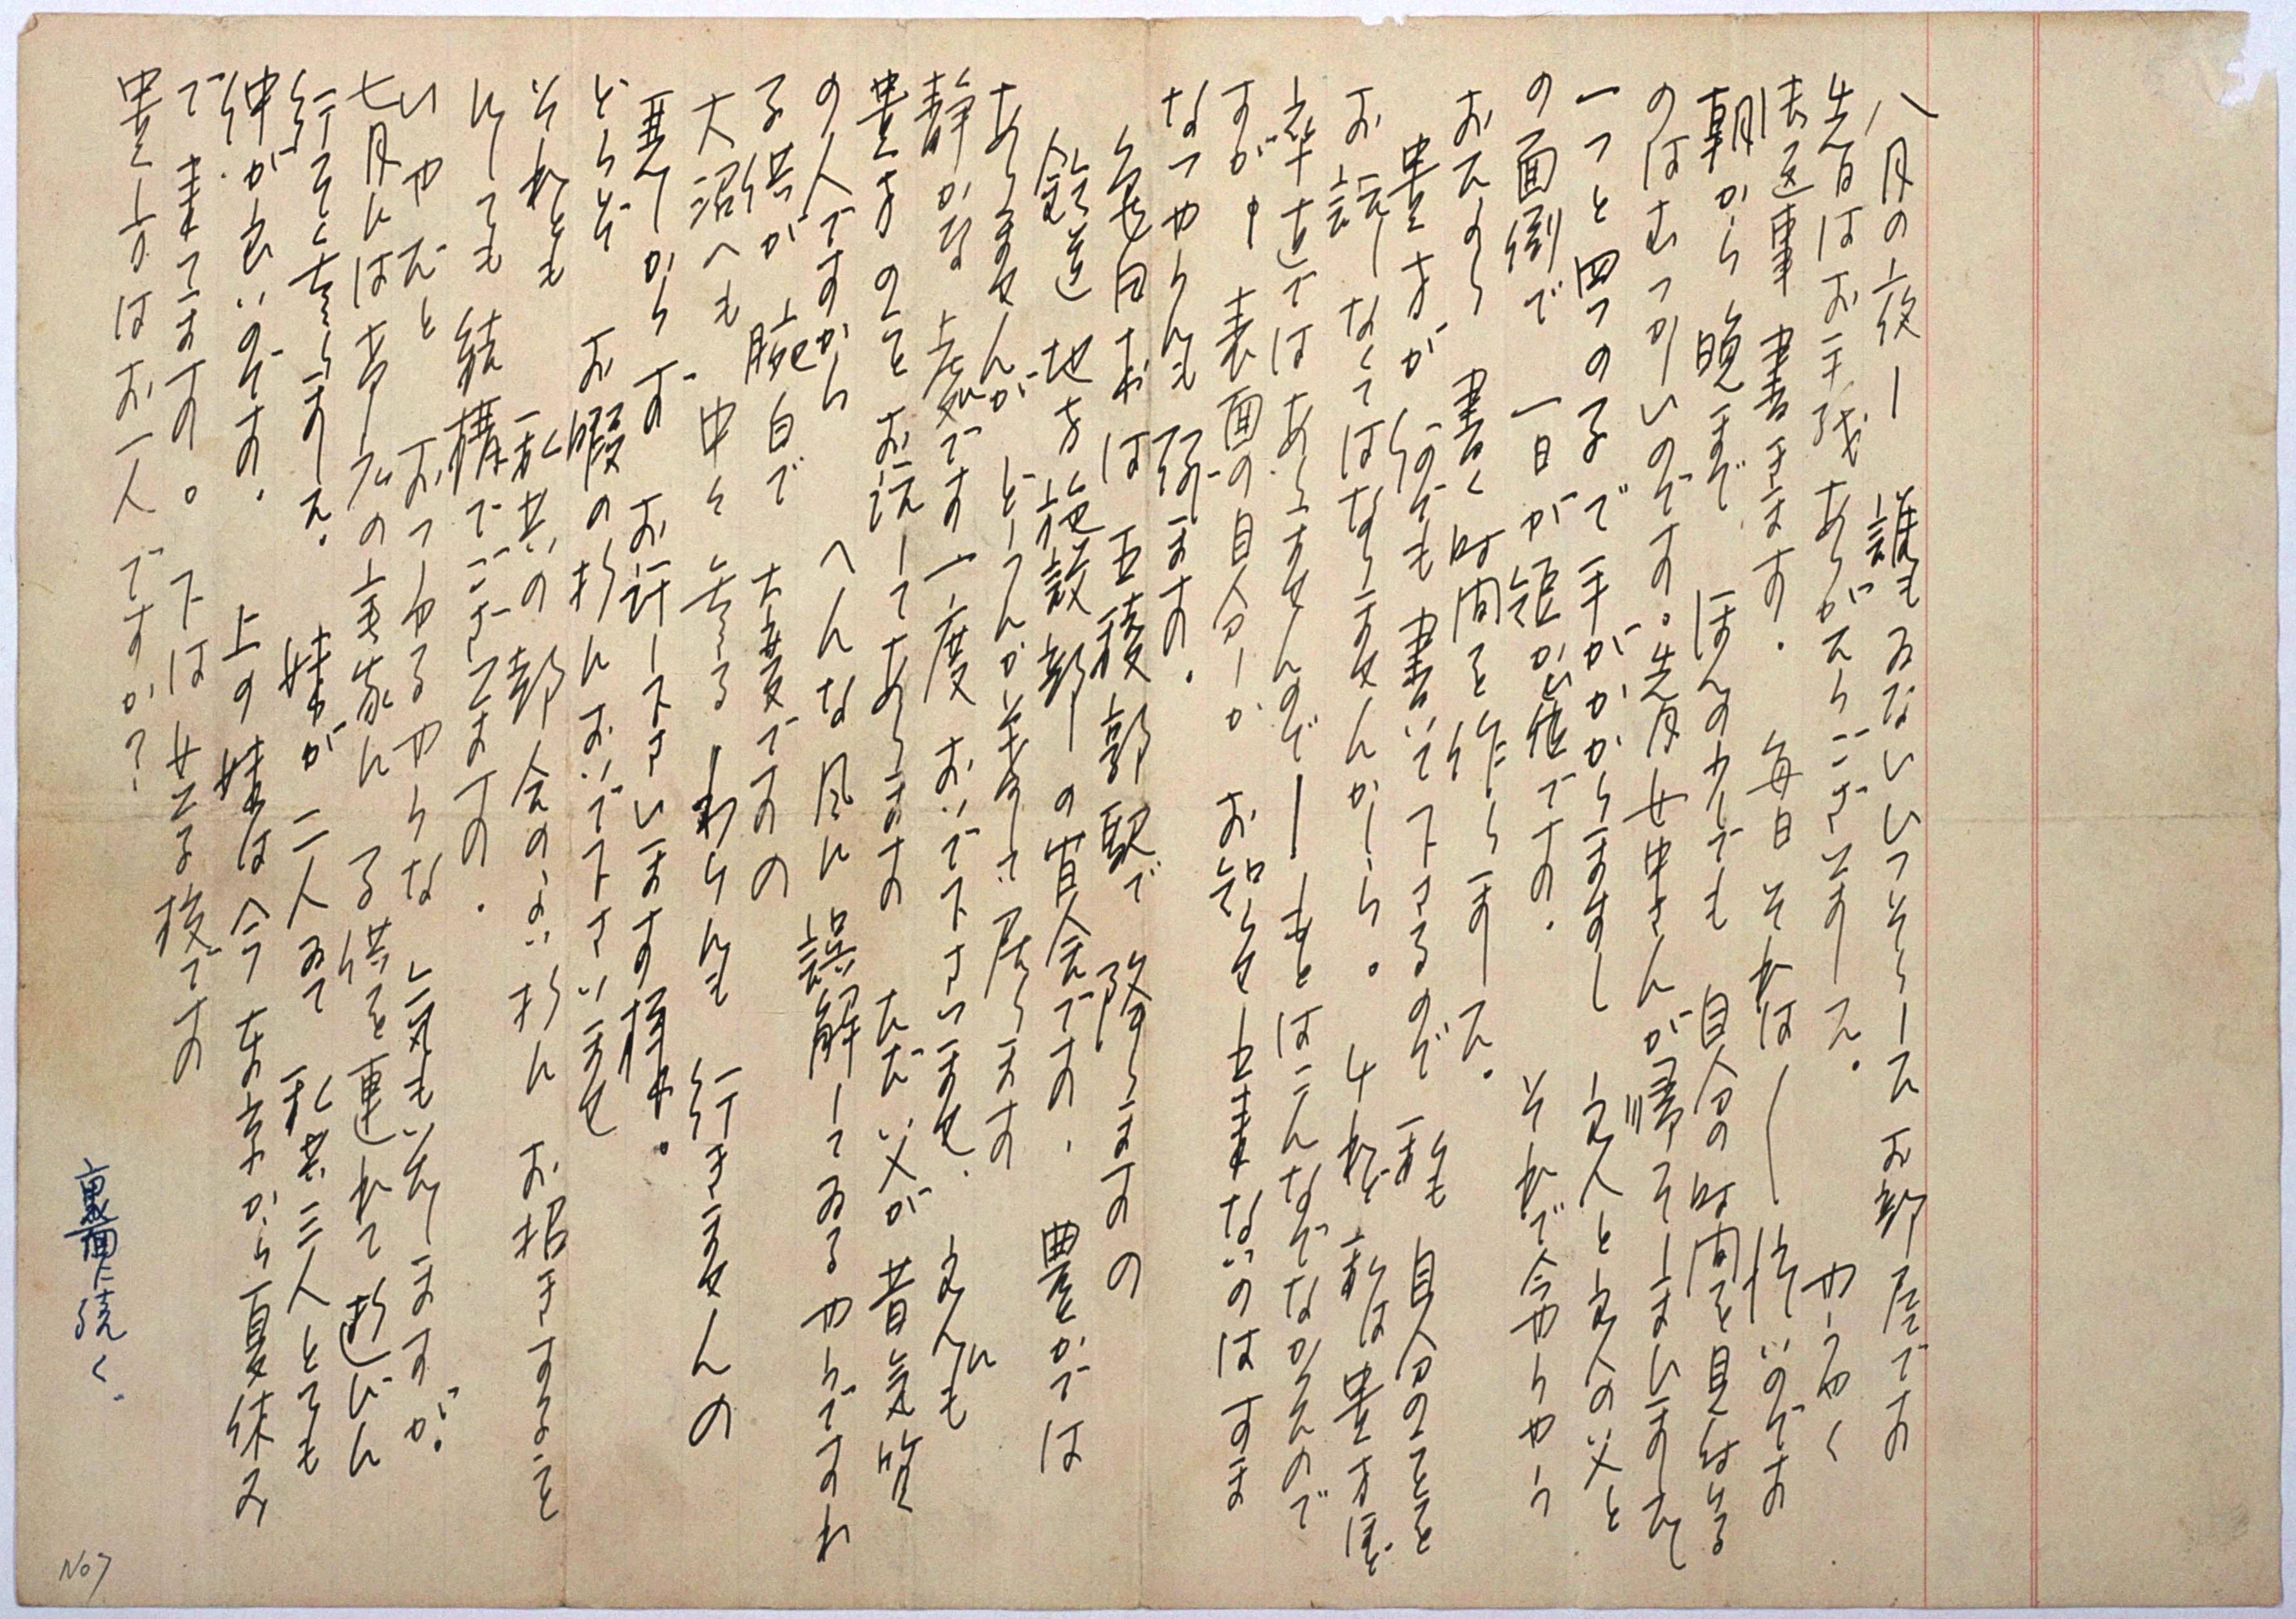 八月の夜ー 誰もゐないいつそうーたお部屋です
先日はお手紙ありがたうございました。 やうやく
御返事書きます。 毎日それはー忙しいのです
朝から晩まで ほんの少しでも自分の時間を見付ける
のはむつかしいのです。先月女中さんが帰つてしまいました
一つと四つの子で手がかかりますし 主人と主人の父と
の面倒で 一日が短かい位です。 それで今やうやう
おたより書く時間を作りました。
貴方が何でも書いて下さるので 私も自分のことを
お話しなくてはなりませんかしら。 けれど私は貴方ほど
率直ではありませんのでー もとはこんなでなかつたので
すがー 表面の自分しか お知らせ出来ないのはすま
なつやうにも思ひます。
亀田おは 五稜郭駅で 降りますの
鉄道地方施設部の官舎です、 豊かでは
ありませんが どうにか暮して居ります
静かな 処です 一度おいで下さいませ、 主人にも
貴方のことお話してあります ただ父が昔気質
の人ですから へんな風に誤解してゐるやうですわ
子供が腕白で 大変ですの
大沼へも 中々参る わけにも 行きませんの
悪しからず お許し下さいます様や。
どうぞ お暇の折においで下さいませ
それとも 私共の都合のよい折に お招きすること
にしても 結構でございますの。
いやだと おつしやるやうな 気もいたしますが。
七月には 青森の実家に 子供を連れて遊びに
行つて参りました。 妹が二人ゐて 私共三人とても
仲が良いのです。 上の妹は今 東京から夏休み
で来てゐます。 下は女子校です
貴方はお一人ですか?
裏面に続く
No7